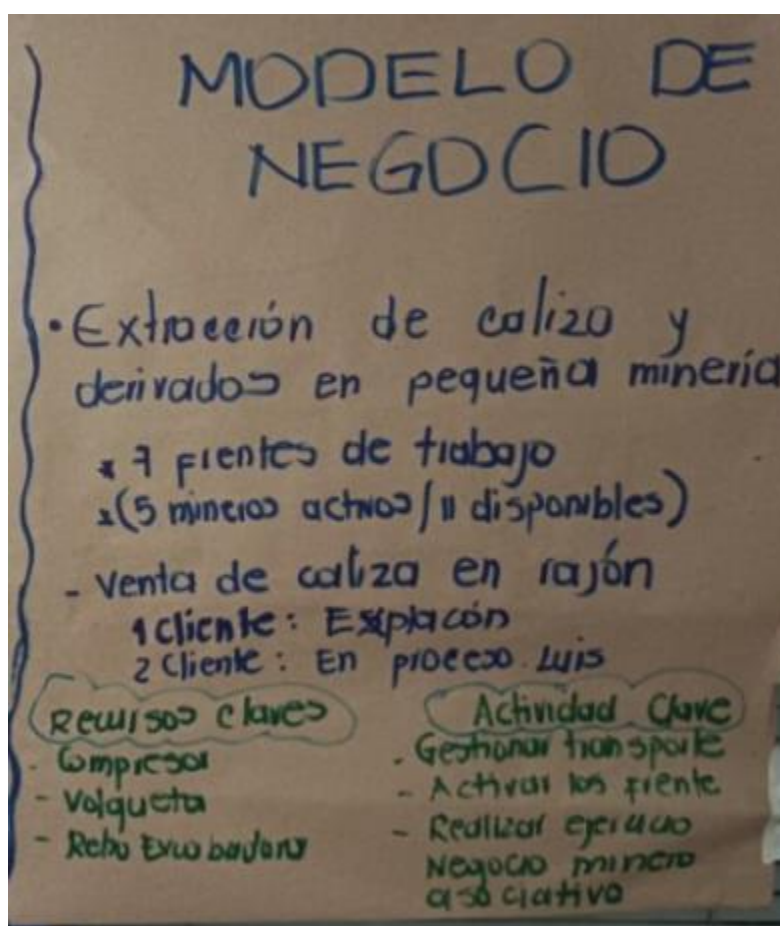 MODELO DE
NEGOCIO
• Extracción de caliza y
derivados en pequeña minería
x 7 frentes de trabajo
x (5 mineros activos / 11 disponibles)
- Venta de caliza en rajón
1 cliente:
2 cliente: En proceso Luis
Recursos claves
- Compresor
- Volqueta
- Retro
Actividad Clave
- Gestionar transporte
- Activar los frente
- Realizar ejercicio
Negocio minero
asociativo